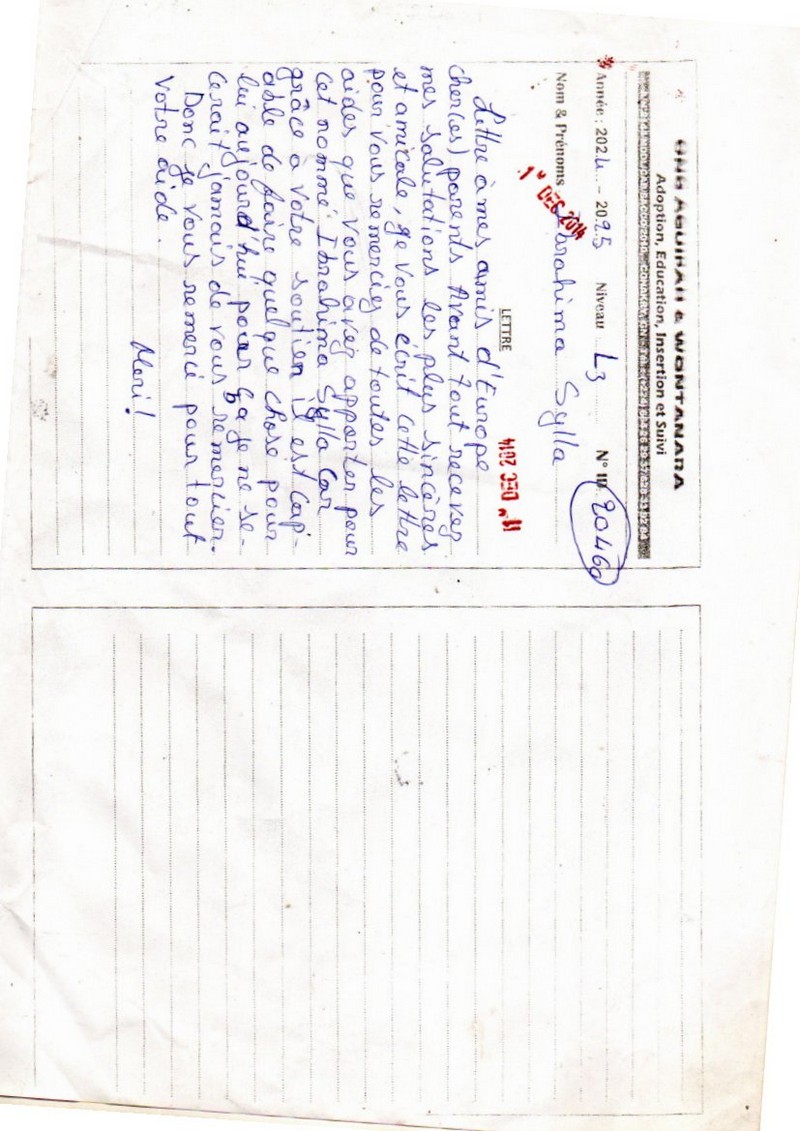 ONG AGUIHAH & WONTANARA
Adoption, Education, Insertion et Suivi
Année : 2024 - 2025 Niveau L3 N° ID 20469
Nom & Prénoms Ibrahima Sylla
DEC 2014
LETTRE
11 DEC 2014
Lettre à mes amis d'Europe
cher(es) parents Avant tout recevez
mes salutations les plus sincères
et amicale, je vous écrit cette lettre
pour vous remercies de toutes les
aides que vous avez apporter pour
cet nommé Ibrahima Sylla Car
grâce à votre soutien il est Cap-
able de faire quelque chose pour
lui aujourd'hui pour ça je ne se-
cerait jamais de vous remercier.
Donc je vous remercie pour tout
votre aide.